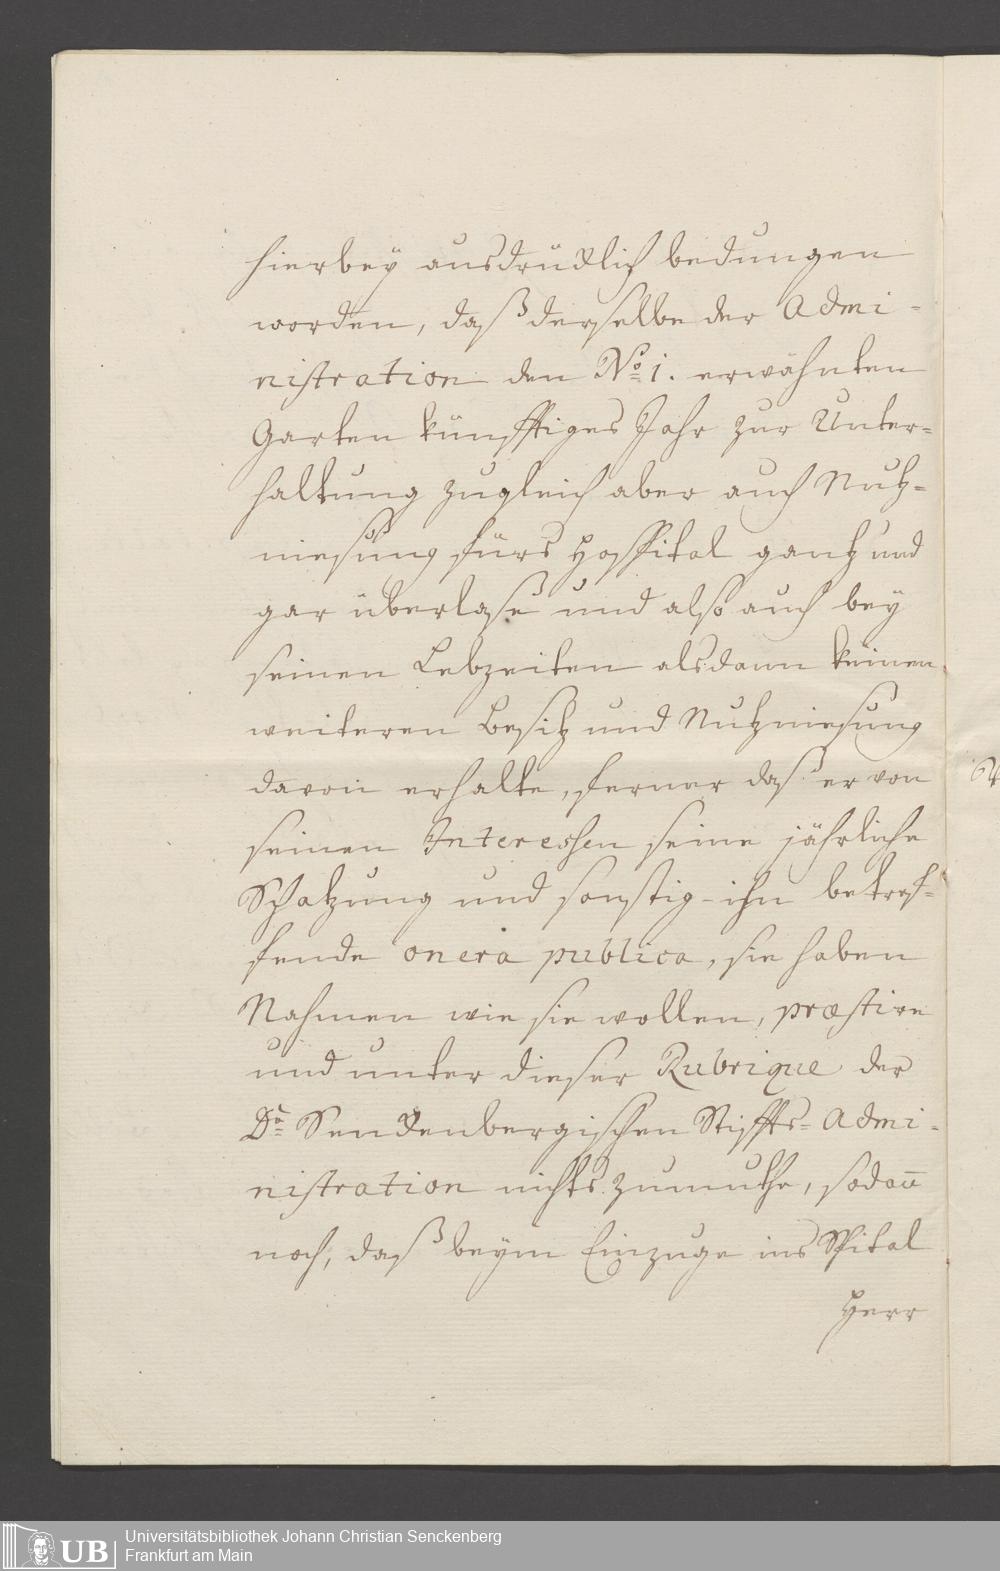 hierbey ausdrücklich bedungen
worden, daß derselbe der Admi-
nistration den No. 1. erwähnten
Garten künfftiges Jahr zur Unter-
haltung zugleich aber auch Nutz-
niesung fürs Hospital gantz und
gar überlaße und also auch bey
seinen Lebzeiten alsdann keinen
weiteren Besitz und Nutzniesung
davon erhalte, ferner daß er von
seinen Interessen seine jährliche
Schatzung und sonstig-ihn betref-
fende onera publica, sie haben
Nahmen wie sie wollen, præstire
und unter dieser Rubrique der
Dr. Senckenbergischen Stiffts-Admi-
nistration nichts zumuthe, sodann
noch, daß beym Einzuge ins Spital
Herr
Universitätsbibliothek Johann Christian Senckenberg
UB Frankfurt am Main